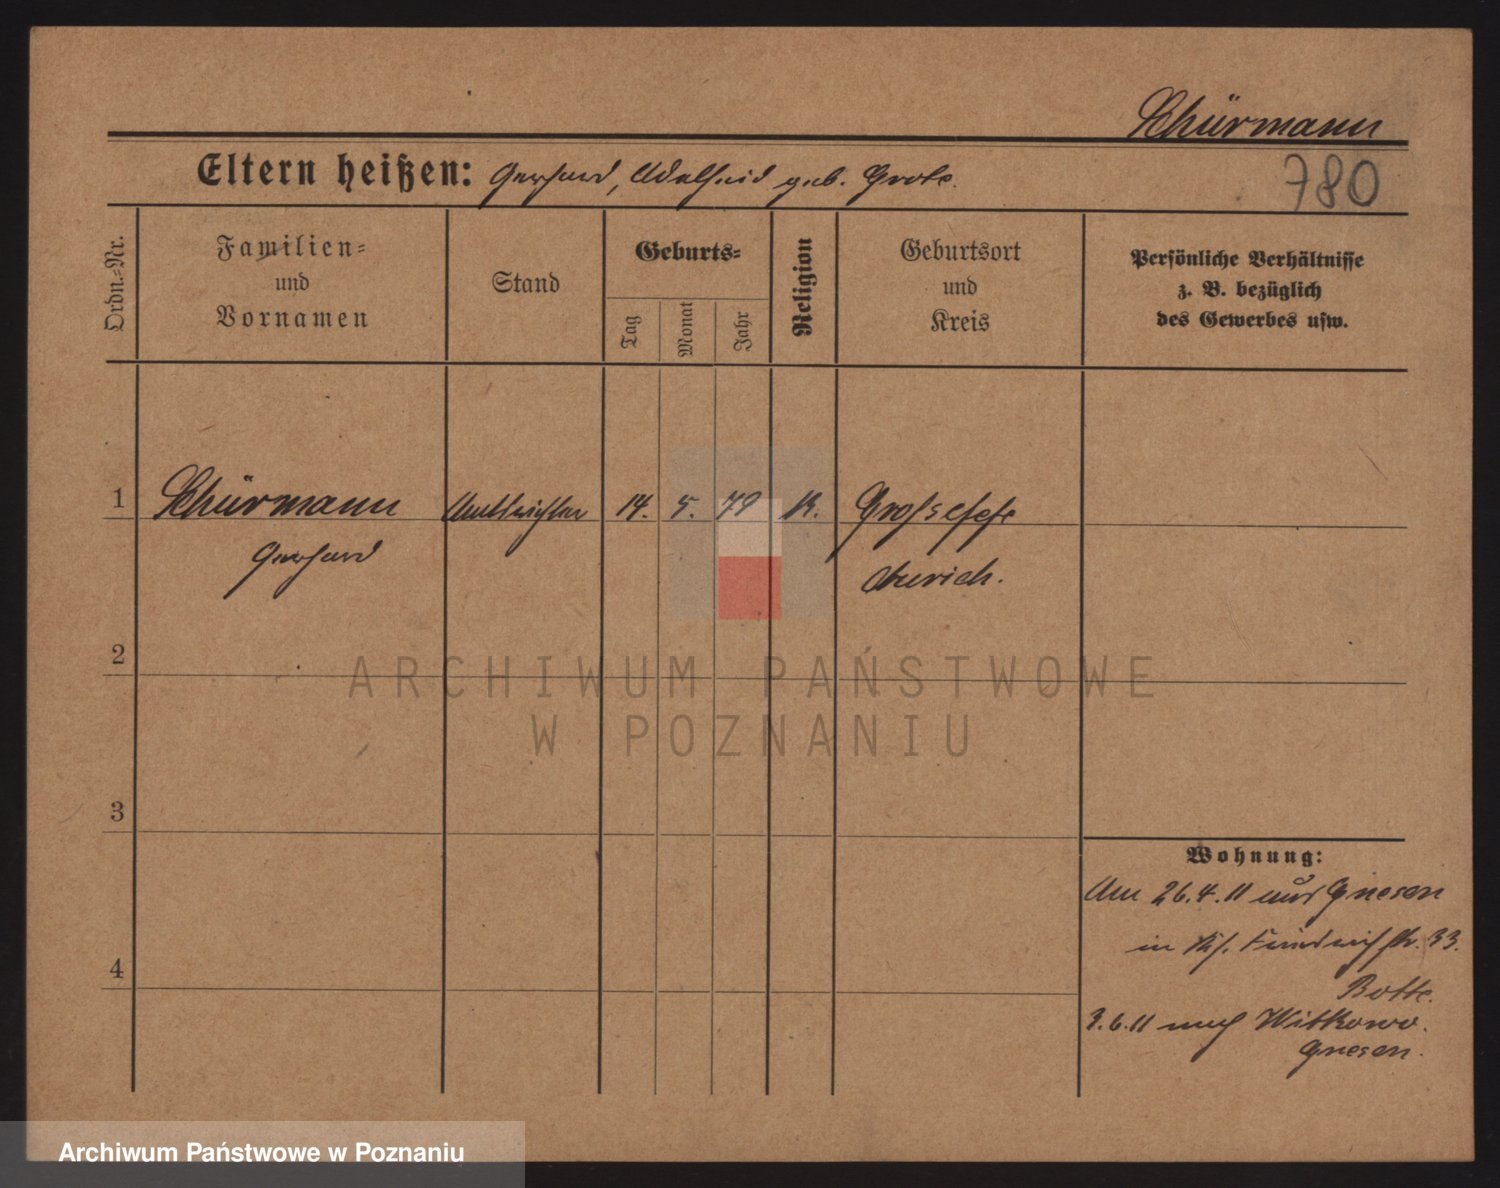 Schürmann
Eltern heißen: Gerhard, Adelheid geb. Grote.
780
Ordn.-Nr.
Familien-
und
Vornamen
Stand
Geburts-
Tag
Monat
Jahr
Religion
Geburtsort
und
Kreis
Persönliche Verhältnisse
z. B. bezüglich
des Gewerbes usw.
1 Schürmann Amtsrichter 14. 5. 79 K. Grossefehn
Gerhard Aurich.
2
ARCHIWUM PAŃSTWOWE
W POZNANIU
3
Wohnung:
Am 26.4.11 aus Gnesen
in str. 33.
4
Botte.
3.6.11 nach Witkowo.
Gnesen.
Archiwum Państwowe w Poznaniu